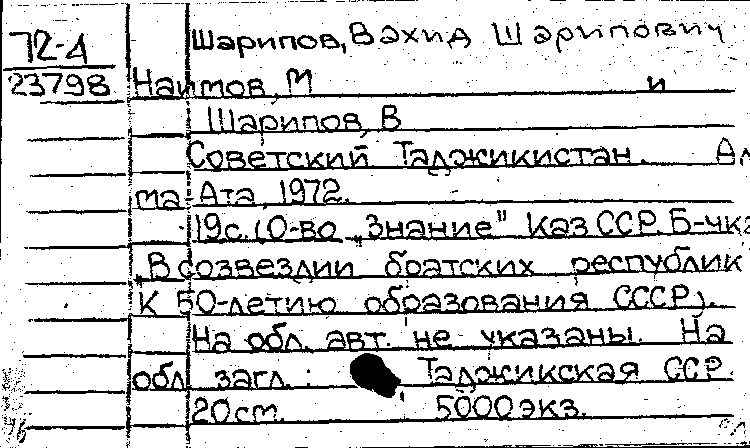 72-4
23798
Шарипов, Вахид Шарипович
Наимов, М и
Шарипов, В
Советский Таджикистан. Ал
ма-Ата, 1972.
19с. (О-во „Знание" КазССР. Б-чка
„В созвездии братских республик
К 50-летию образования СССР).
На обл. авт. не указаны. На
обл. загл.: Таджикская ССР.
20см. 5000экз.